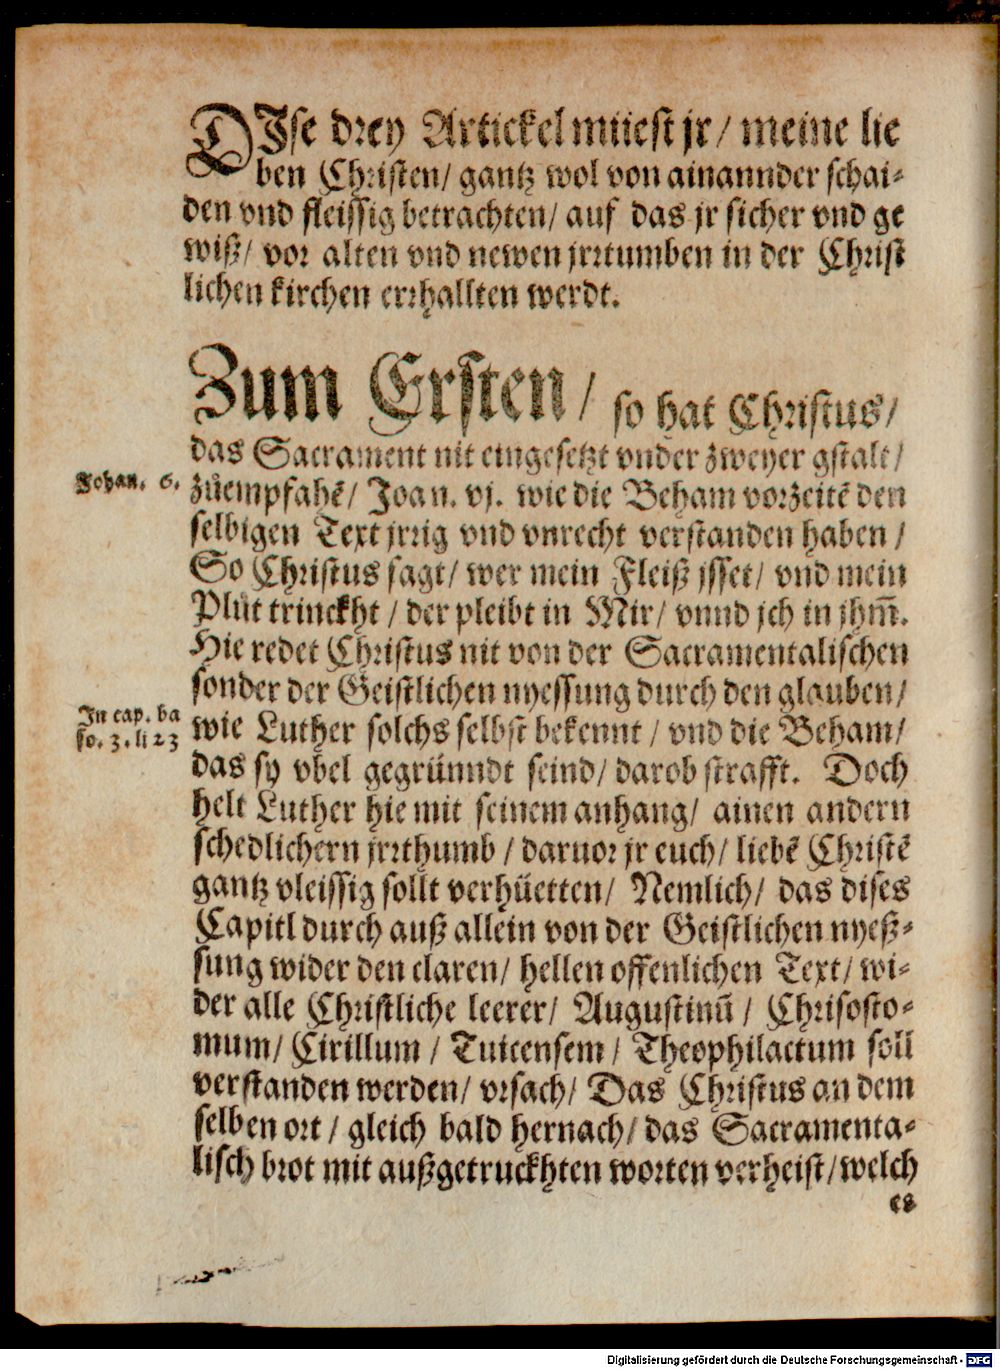 DIse drey Artickel müest jr / meine lie
ben Christen / gantz wol von ainannder schai⸗
den vnd fleissig betrachten / auf das jr sicher vnd ge
wiß / vor alten vnd newen jrrtumben in der Christ
lichen kirchen errhallten werdt.
Zum Ersten / so hat Christus /
das Sacrament nit eingesetzt vnder zweyer gstalt /
Johan. 6.
zůempfahē / Joan. vj. wie die Beham vorzeitē den
selbigen Text jrrig vnd vnrecht verstanden haben /
So Christus sagt / wer mein Fleiß jsset / vnd mein
Plůt trinckht / der pleibt in Mir / vnnd jch in jhm̄.
Hie redet Christus nit von der Sacramentalischen
sonder der Geistlichen nyessung durch den glauben /
In cap. ba
so. 3. li 23
wie Luther solchs selbst bekennt / vnd die Beham /
das sy vbel gegrünndt seind / darob strafft. Doch
helt Luther hie mit seinem anhang / ainen andern
schedlichern jrrthumb / daruor jr euch / liebē Christē
gantz vleissig sollt verhüetten / Nemlich / das dises
Capitl durch auß allein von der Geistlichen nyeß⸗
sung wider den claren / hellen offenlichen Text / wi⸗
der alle Christliche leerer / Augustinū / Chrisosto⸗
mum / Cirillum / Tuicensem / Theophilactum soll
verstanden werden / vrsach / Das Christus an dem
selben ort / gleich bald hernach / das Sacramenta⸗
lisch brot mit außgetruckhten worten verheist / welch
es
Digitalisierung gefördert durch die Deutsche Forschungsgemeinschaft - DFG